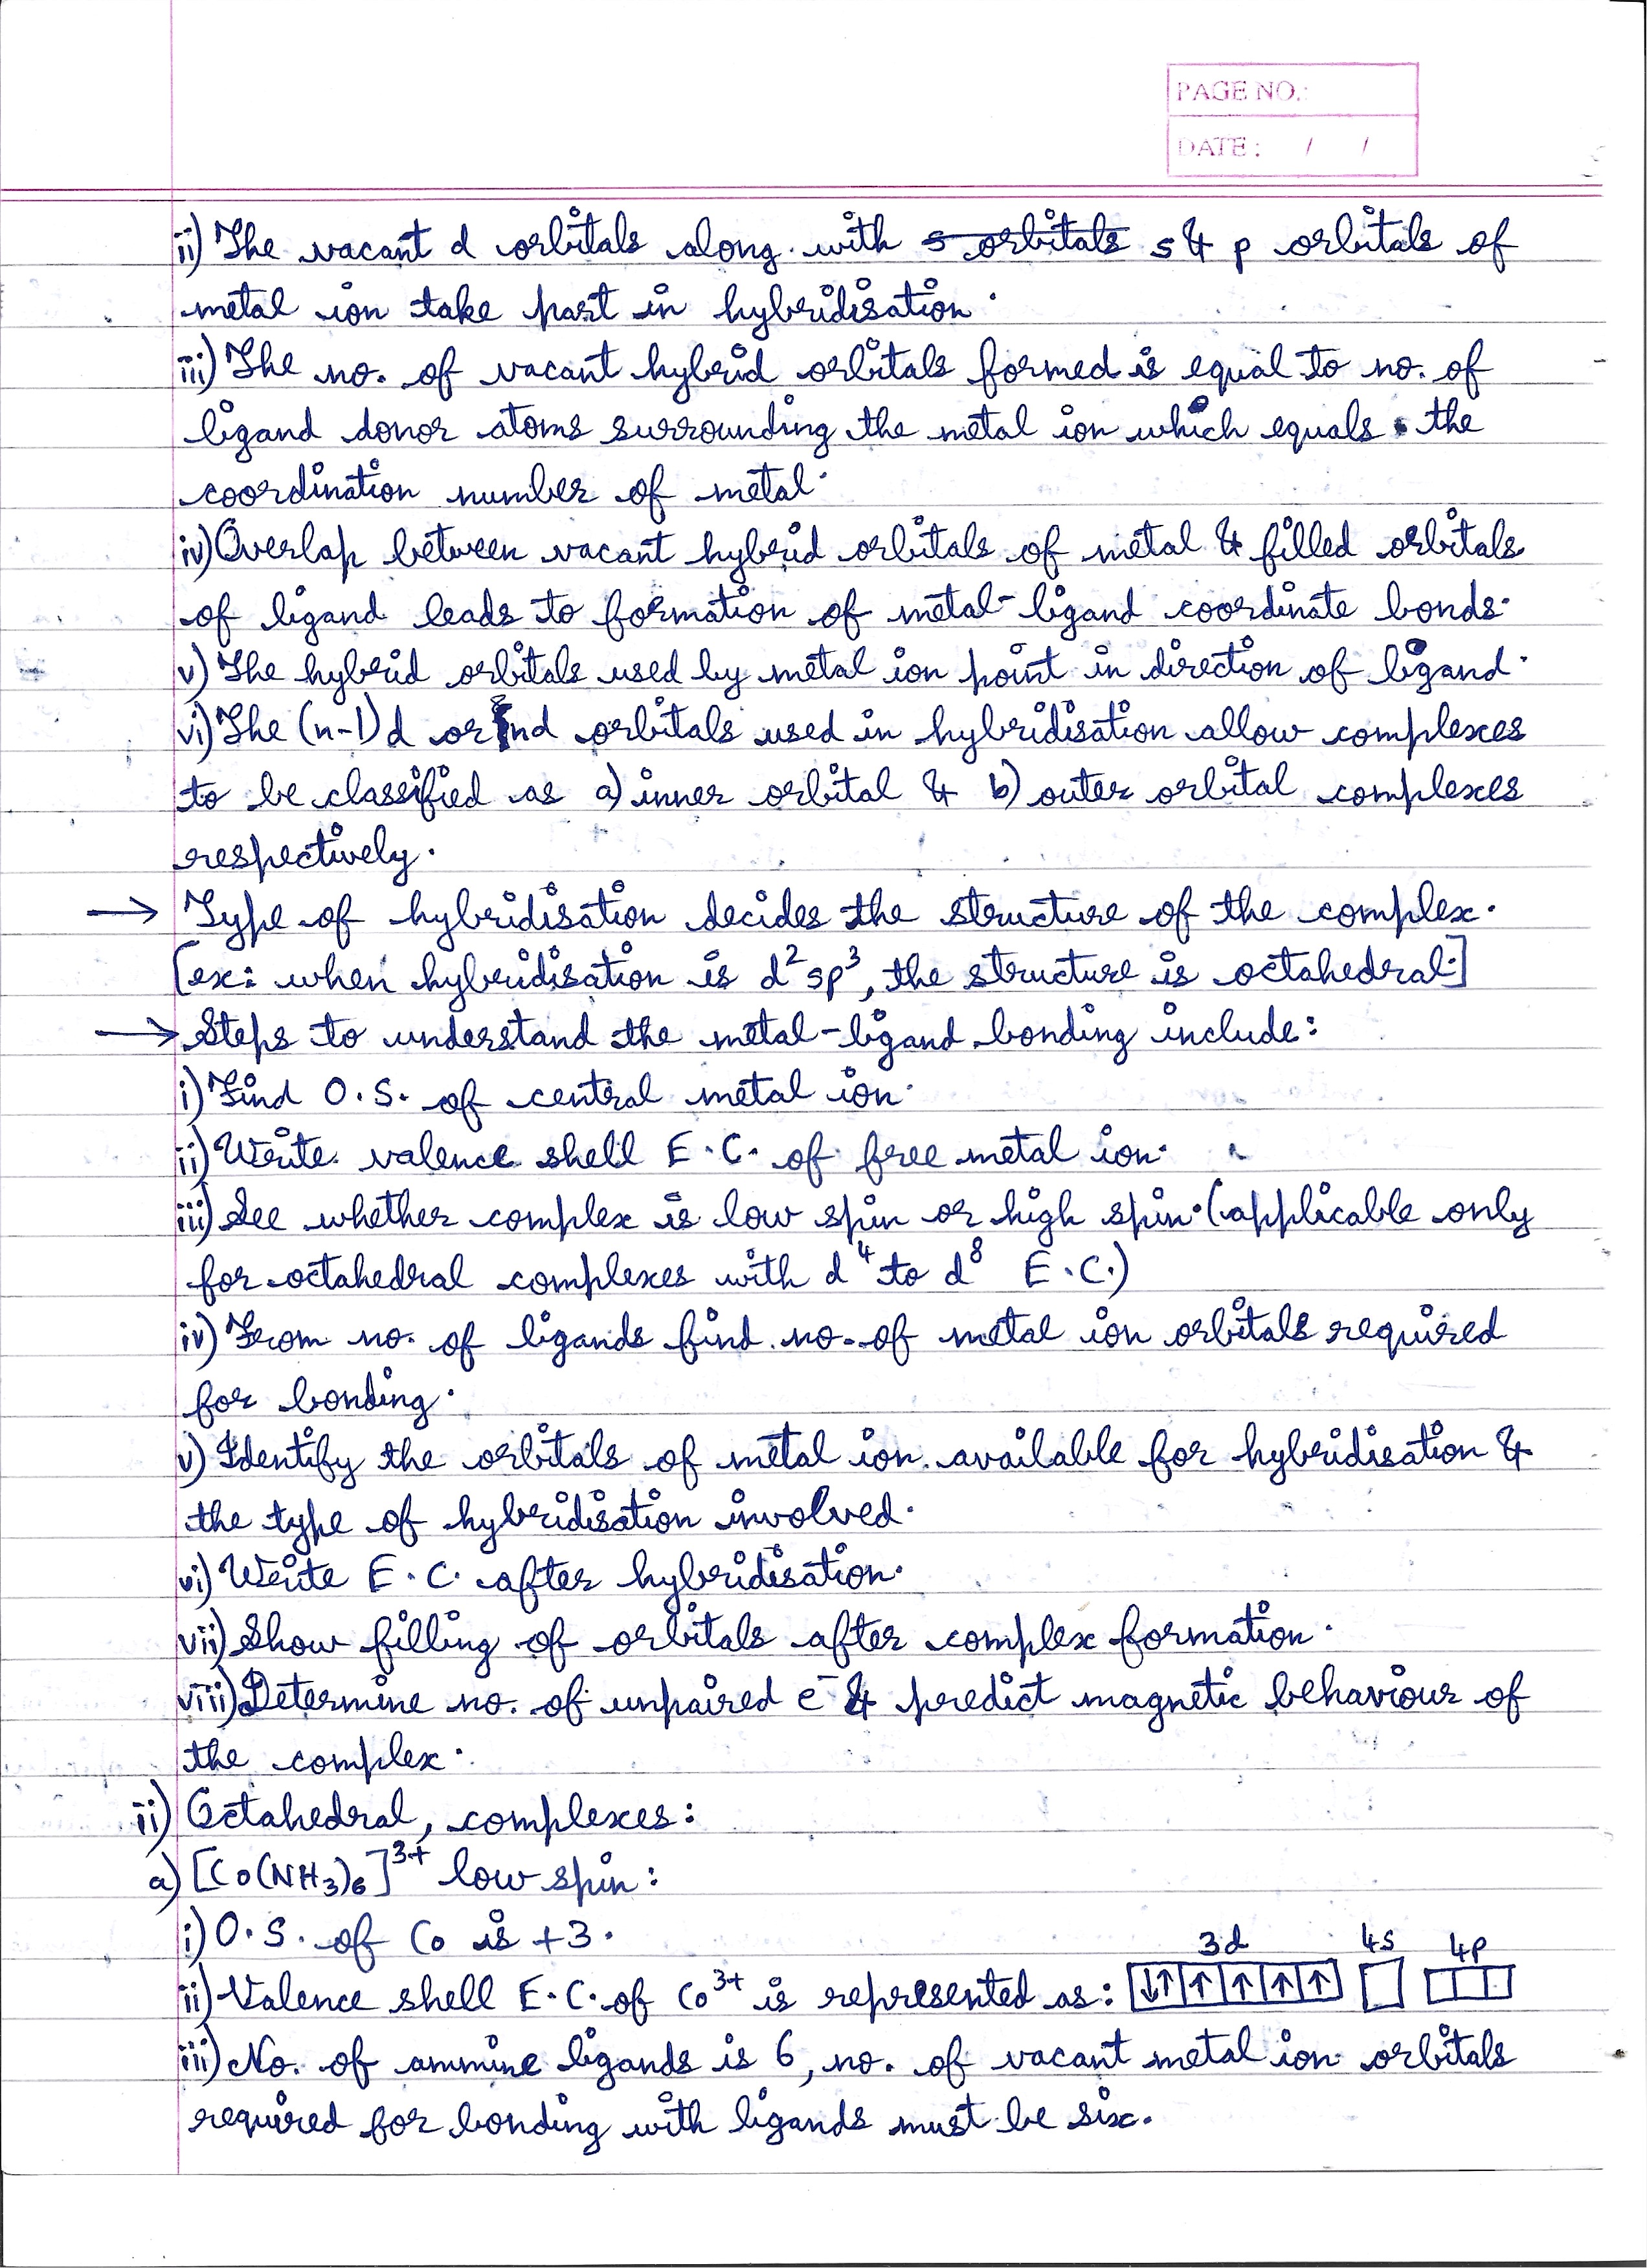 PAGE NO.:
DATE : / /
ii) The vacant d orbitals along with s orbitals s & p orbitals of
metal ion take part in hybridisation.
iii) The no. of vacant hybrid orbitals formed is equal to no. of
ligand donor atoms surrounding the metal ion which equals the
coordination number of metal.
iv) Overlap between vacant hybrid orbitals of metal & filled orbitals
of ligand leads to formation of metal-ligand coordinate bonds.
v) The hybrid orbitals used by metal ion point in direction of ligand.
vi) The (n-1)d or nd orbitals used in hybridisation allow complexes
to be classified as a) inner orbital & b) outer orbital complexes
respectively.
→ Type of hybridisation decides the structure of the complex.
[ex: when hybridisation is d²sp³, the structure is octahedral.]
→ Steps to understand the metal-ligand bonding include:
i) Find O.S. of central metal ion.
ii) Write valence shell E.C. of free metal ion.
iii) See whether complex is low spin or high spin. (applicable only
for octahedral complexes with d⁴ to d⁸ E.C.)
iv) From no. of ligands find no. of metal ion orbitals required
for bonding.
v) Identify the orbitals of metal ion available for hybridisation &
the type of hybridisation involved.
vi) Write E.C. after hybridisation.
vii) Show filling of orbitals after complex formation.
viii) Determine no. of unpaired e⁻ & predict magnetic behaviour of
the complex.
ii) Octahedral, complexes:
a) [Co(NH₃)₆]³⁺ low spin:
i) O.S. of Co is +3.
3d 4s 4p
ii) Valence shell E.C. of Co³⁺ is represented as: ↓↑ ↑ ↑ ↑ ↑
iii) No. of ammine ligands is 6, no. of vacant metal ion orbitals
required for bonding with ligands must be six.